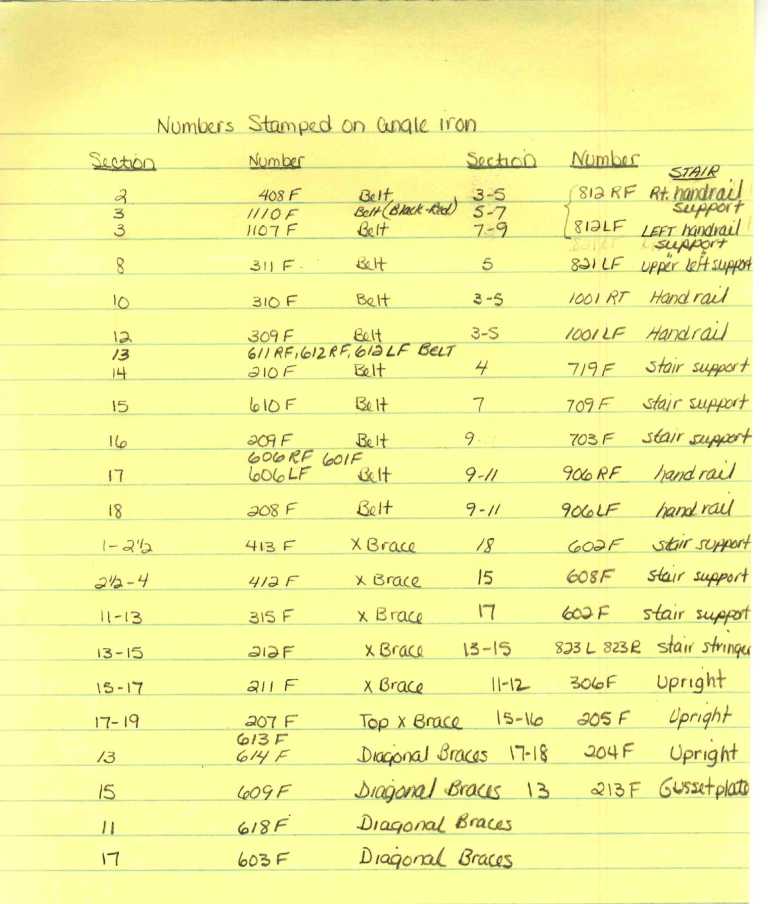 Numbers Stamped on angle iron
Section Number Section Number STAIR
2 408 F Belt 3-5 812 RF Rt. handrail support
3 1110 F Belt (Black-Red) 5-7
3 1107 F Belt 7-9 812 LF LEFT handrail support
8 311 F. Belt 5 821 LF upper left support
10 310 F Belt 3-5 1001 RT Handrail
12 309 F Belt 3-5 1001 LF Handrail
13 611 RF, 612 RF, 612 LF BELT
14 210 F Belt 4 719 F stair support
15 610 F Belt 7 709 F stair support
16 209 F Belt 9 703 F stair support
606 RF 601F
17 606 LF Belt 9-11 906 RF handrail
18 208 F Belt 9-11 906 LF handrail
1-2½ 413 F X Brace 18 602 F stair support
2½-4 412 F X Brace 15 608 F stair support
11-13 315 F X Brace 17 602 F stair support
13-15 212 F X Brace 13-15 823 L 823 R stair stringer
15-17 211 F X Brace 11-12 306 F Upright
17-19 207 F Top X Brace 15-16 205 F Upright
613 F
13 614 F Diagonal Braces 17-18 204 F Upright
15 609 F Diagonal Braces 13 213 F Gusset plate
11 618 F Diagonal Braces
17 603 F Diagonal Braces